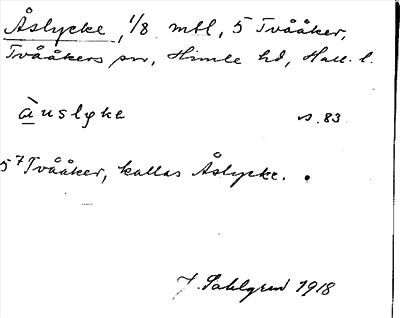 Åslycke, 1/8 mtl, 5 Tvååker,
Tvååkers sn, Himle hd, Hall. l.
àuslyke s. 83.
5⁷ Tvååker, kallas Åslycke.
J. Sahlgren 1918